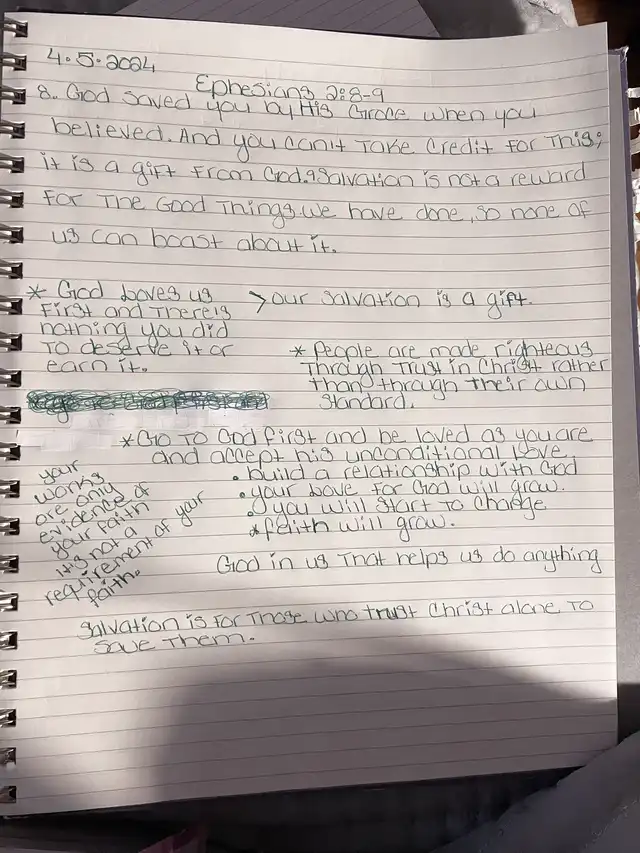 4.5.2024
Ephesians 2:8-9
8. God saved you by His Grace when you
believed. And you can't take credit for this;
it is a gift from God. 9 Salvation is not a reward
for the Good Things we have done, so none of
us can boast about it.
* God Loves us
First and There is
nothing you did
To deserve it or
earn it.
> our salvation is a gift.
* People are made righteous
Through Trust in Christ rather
than through their own
standard.
*Go To God first and be loved as you are
and accept his unconditional love.
• build a relationship with God
• your Love for God will grow.
• you will start to change
* faith will grow.
your
works
are only
evidence of
your faith
it's not a
requirement of your
faith.
God in us That helps us do anything
Salvation is for Those who trust Christ alone To
save Them.